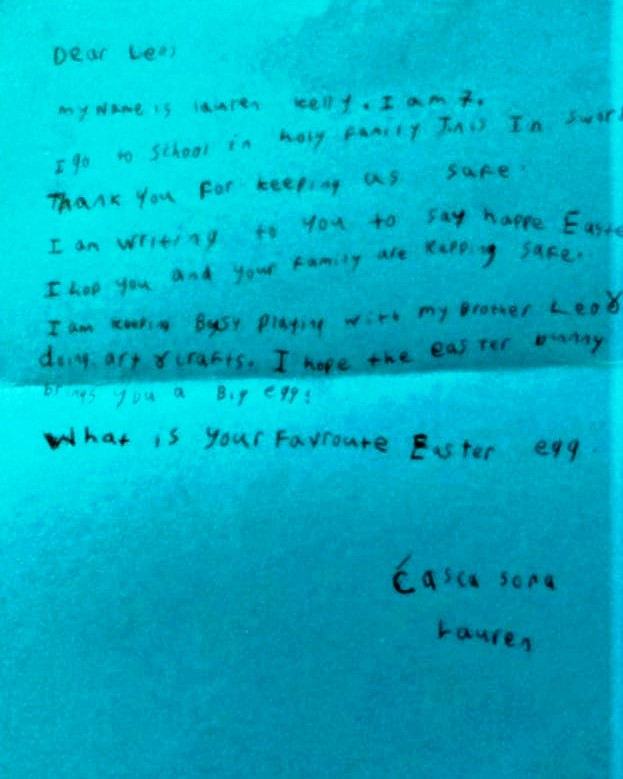 Dear Leo,
my name is lauren kelly. I am 7.
I go to School in holy Family Junis In
Thank You For keeping us safe.
I am writing to you to say happe
I hop you and your Family are kepping safe.
I am keeping Busy Playing with my Brother Leo &
doing art & crafts. I hope the easter bunny
brings you a Big egg!
What is your Favroute Easter egg
Cásca sona
Lauren